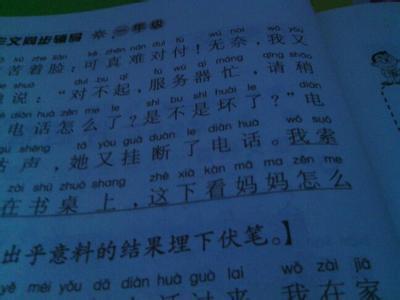 文同步辅导 ※ 一年级
zhe liǎn kě zhēn nán duì fù wú nài wǒ yòu
苦着脸：可真难对付！无奈，我又
shuō duì bu qǐ fú wù qì máng qǐng shāo
说：“对不起，服务器忙，请稍
diàn huà zěn me le shì bu shì huài le diàn
电话怎么了？是不是坏了？”电
shēng tā yòu guà duàn le diàn huà
声，她又挂断了电话。我索
zài shū zhuō shang zhè xià kàn mā ma zěn me
在书桌上，这下看妈妈怎么
出乎意料的结果埋下伏笔。】
yě méi yǒu dǎ diàn huà guò lai wǒ zài jiā
我在家